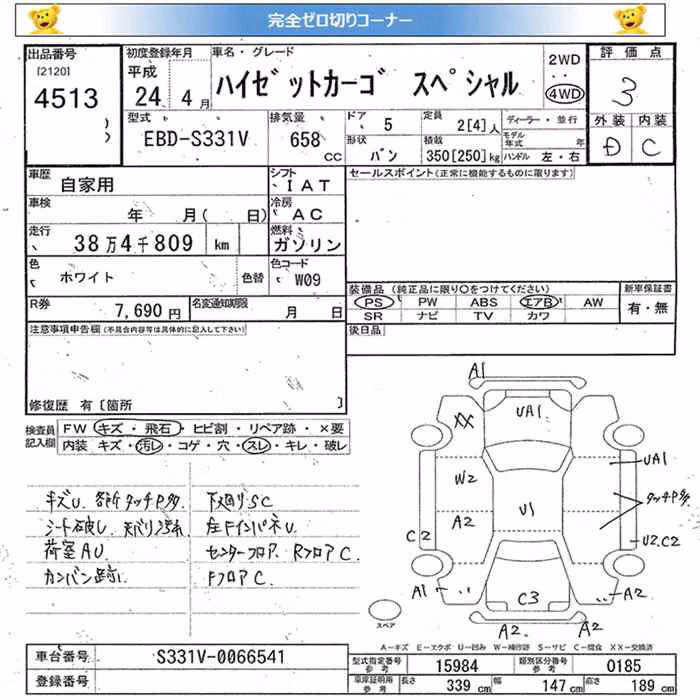 完全ゼロ切りコーナー
出品番号
[2120]
4513
初度登録年月
平成
24年 4月
車名・グレード
ハイゼットカーゴ スペシャル
2WD
4WD
評価点
3
外装 内装
D C
型式
EBD-S331V
排気量
658 CC
ドア 5
形状 バン
定員 2[4]人
積載 350[250]kg
ディーラー・並行
モデル年式 年
ハンドル 左・右
車歴 自家用
シフト IAT
車検 年 月( 日)
冷房 AC
走行 38万4千809 km
燃料 ガソリン
色 ホワイト 色替
色コード W09
R券 7,690円
名変通知期限 月 日
セールスポイント(正常に機能するものに限ります)
装備品 (純正品に限り○をつけてください)
PS PW ABS エアB AW
SR ナビ TV カワ
新車保証書
有・無
後日品
注意事項申告欄(不具合内容等は具体的に記入して下さい)
修復歴 有〔箇所 〕
検査員記入欄
FW キズ・飛石・ヒビ割・リペア跡・×要
内装 キズ・汚レ・コゲ・穴・スレ・キレ・破レ
キズU、各所タッチP多
シート破レ 天バリ汚れ
荷室AU
カンバン跡
下廻りSC
左FインパネU
センターフロア、RフロアC
FフロアC
A1
UA1
XX
W2
UA1
A2
U1
タッチP多
C2
U2.C2
A1
C3
A2
A2
A2
スペア
A-キズ E-エクボ U-凹み W-補修跡 S-サビ C-腐食 XX-交換済
車台番号 S331V-0066541
登録番号
型式指定番号 参考 15984
類別区分番号 参考 0185
車庫証明用 参考 長さ 339cm 幅 147cm 高さ 189cm